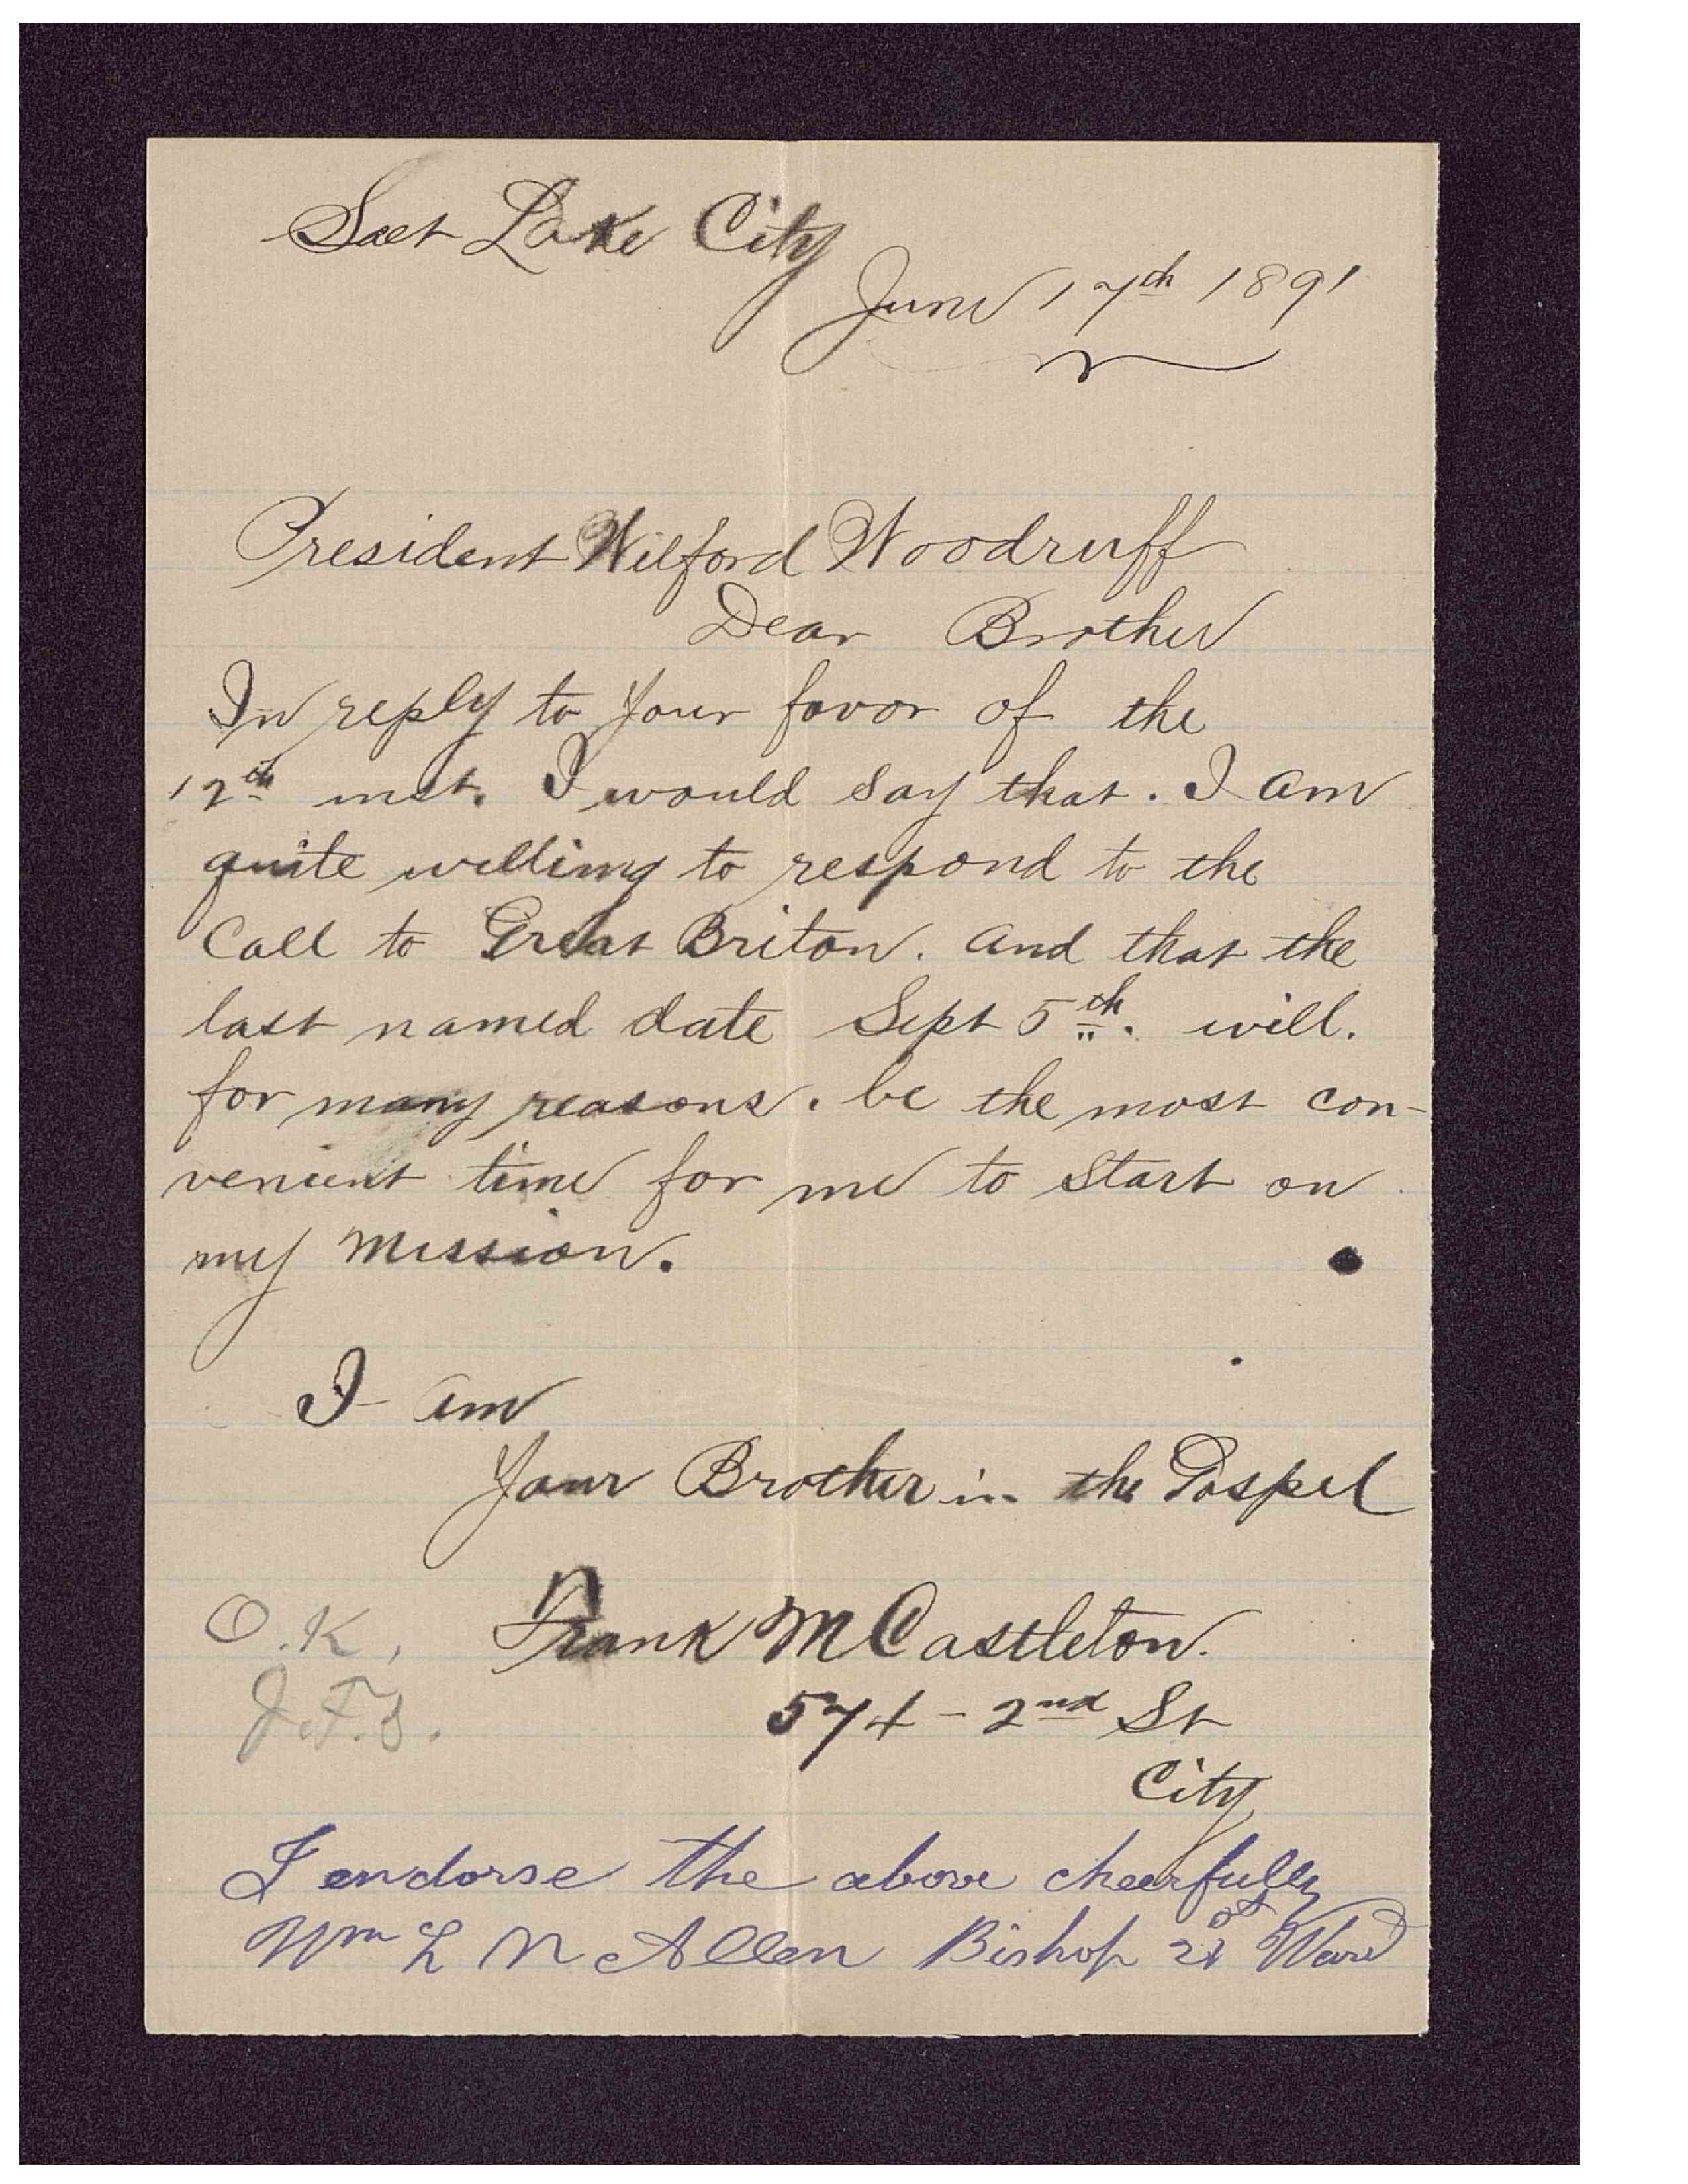 Salt Lake City
June 17th 1891
President Wilford Woodruff
Dear Brother
In reply to your favor of the
12th inst. I would say that. I am
quite willing to respond to the
Call to Great Briton. and that the
last named date Sept 5th. will.
for many reasons. be the most con-
venient time for me to start on
my mission.
I am
Your Brother in the Gospel
Frank M Castleton.
O.K,
J.F.S.
574 - 2nd St
City
I endorse the above cheerfully
Wm L N Allen Bishop 21st Ward